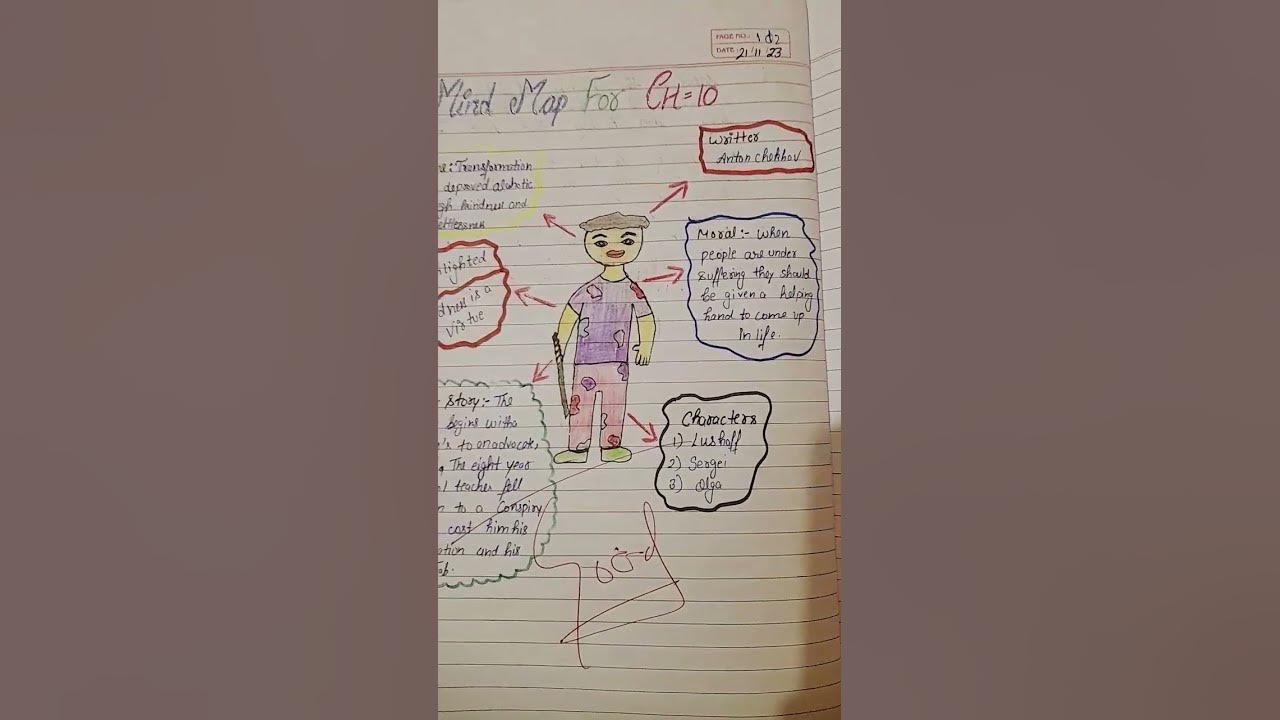 PAGE NO.: 102
DATE: 21/11/23
Mind Map For CH=10
writter
Anton Chekhov
e: Transformation
depraved alcoholic
gh kindness and
Moral:- when
people are under
suffering they should
be given a helping
hand to come up
In life.
lighted
dness is a
virtue
Story:- The
begins witha
's to an advocate,
The eight year
l teacher fell
n to a Conspiry
cost him his
ation and his
Job.
Characters
1) Lushoff
2) Sergei
3) Olga
Good